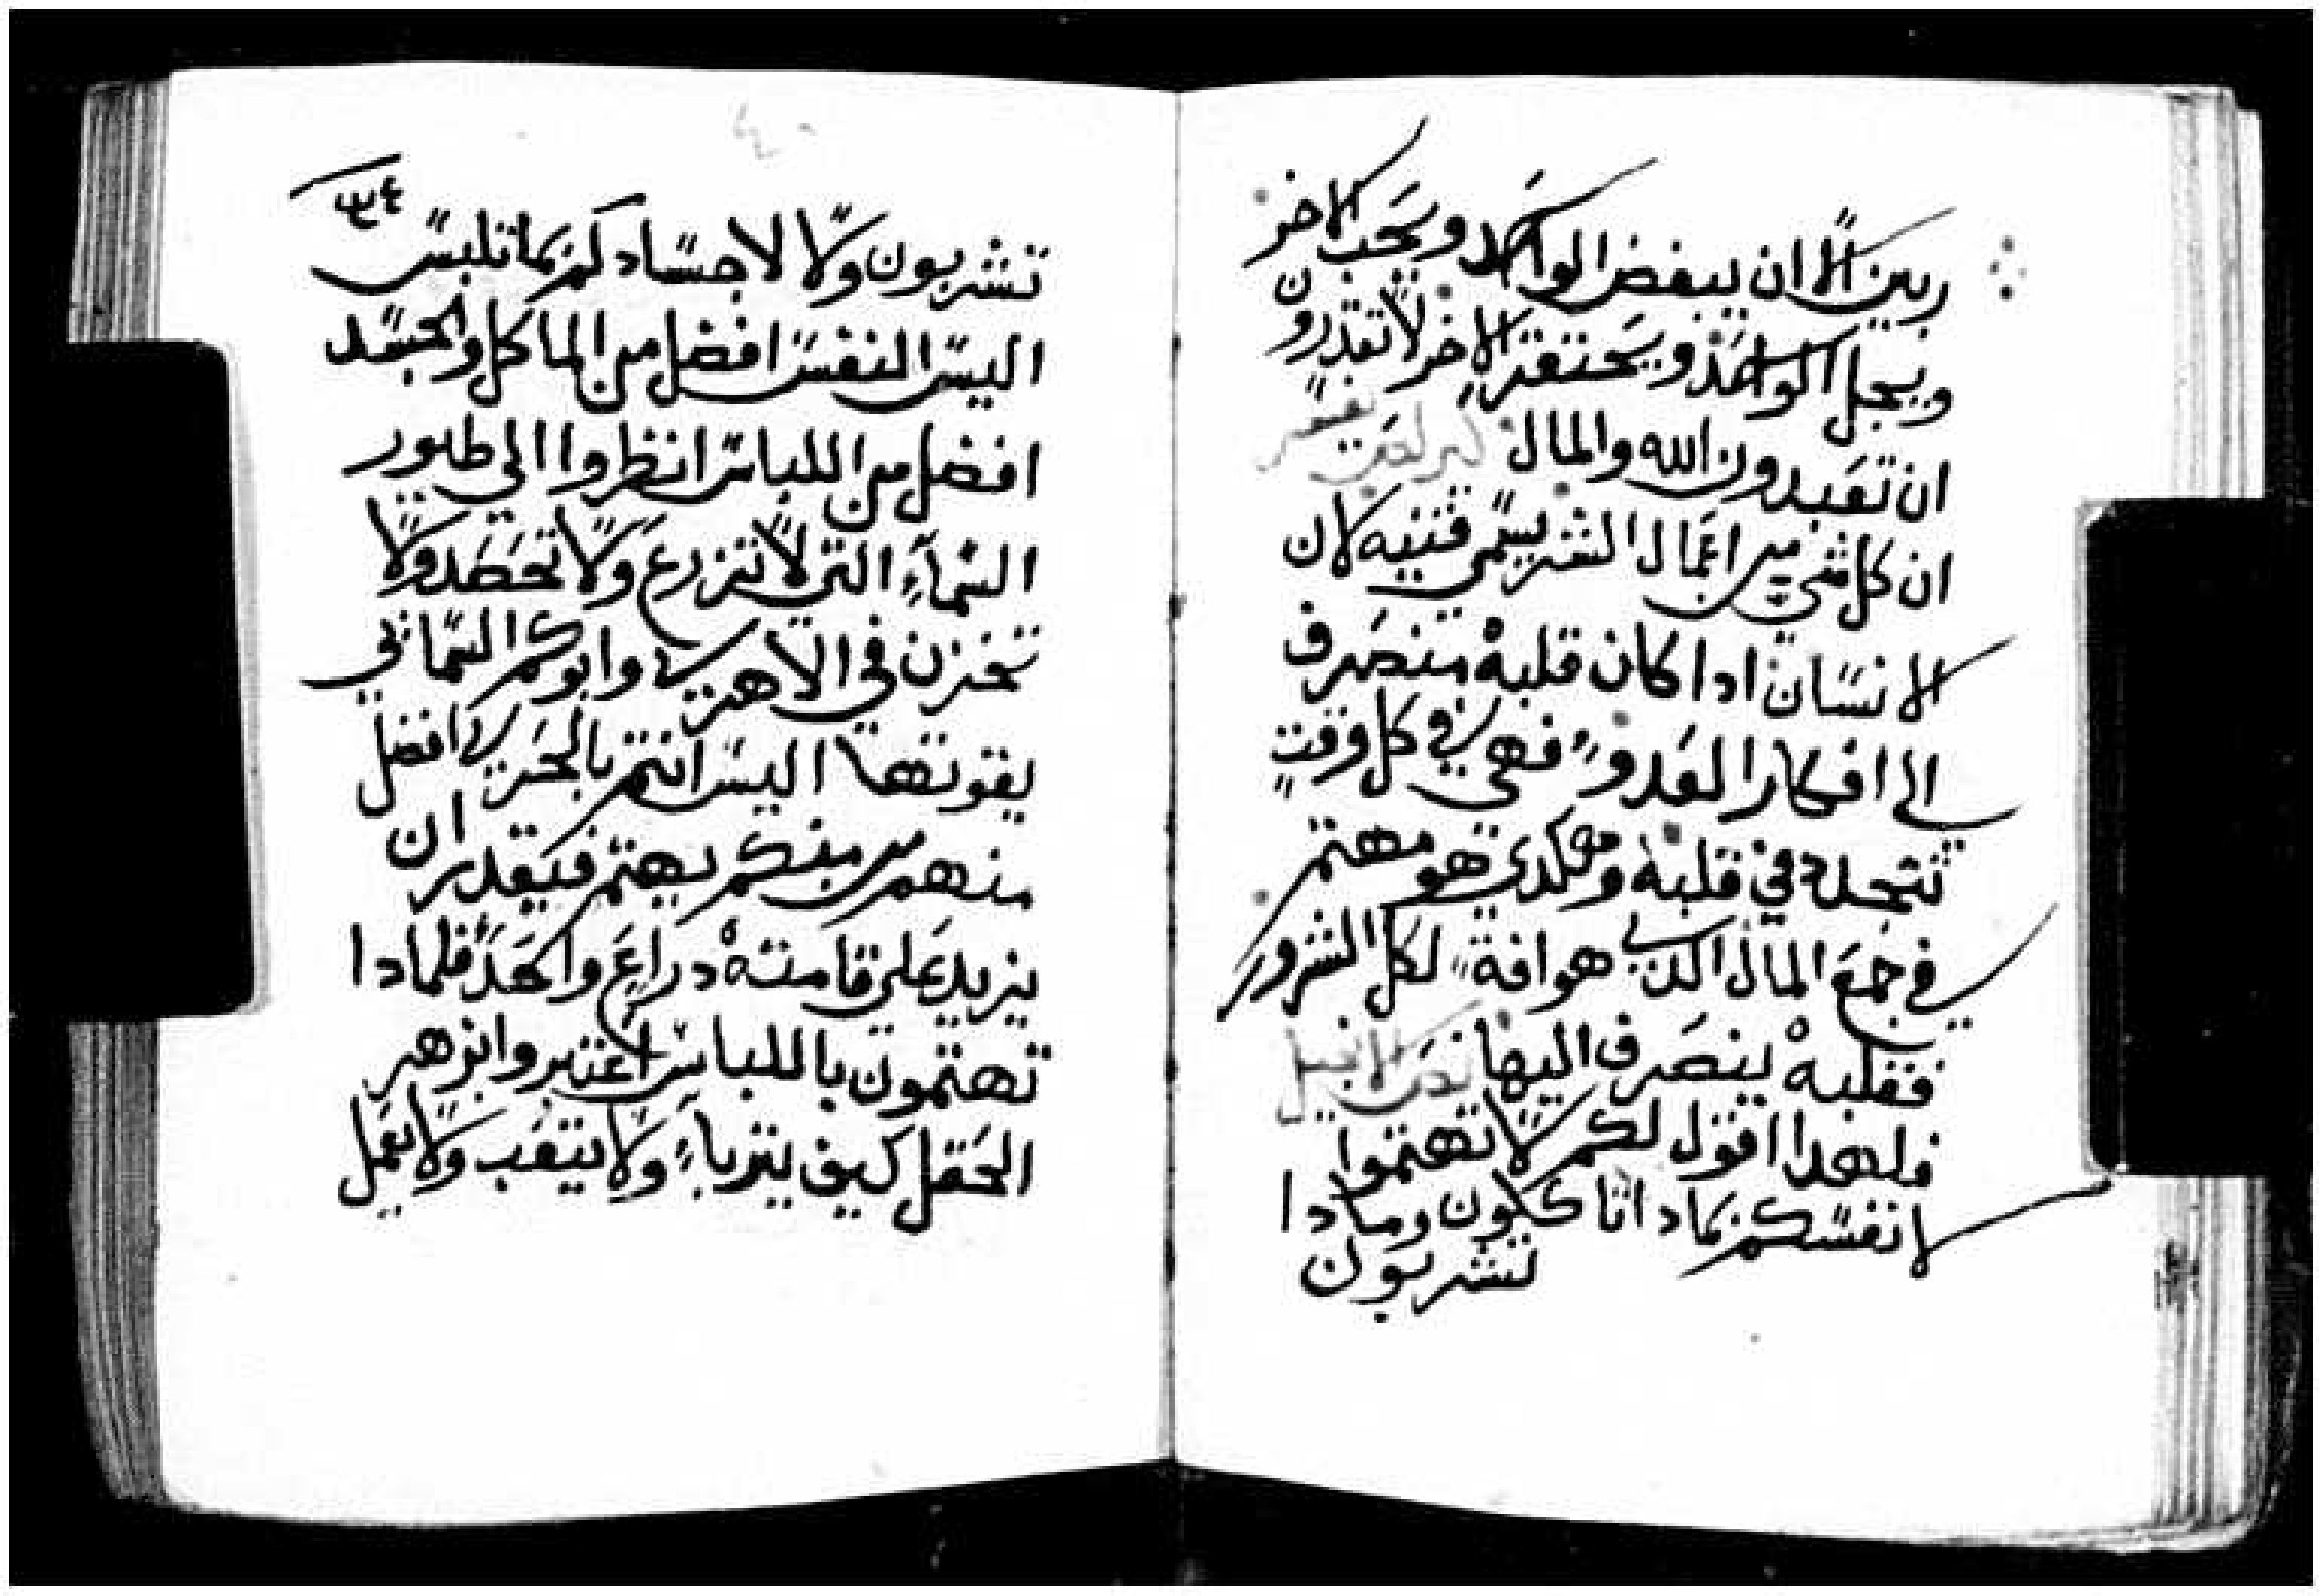 ربين الا ان يبغض الواحد ويحب الاخر
ويجل الواحد ويحتقر الاخر لا تقدرون
ان تعبدون الله والمال تفسير
ان كل شي من اعمال الشر يسمي قنيه لان
الانسان ادا كان قلبه منصرف
الى افكار العدو فهي في كل وقت
تتجدد في قلبه وهكدي هو مهتم
في جمع المال الدي هو افة لكل الشرور
فقلبه ينصرف اليها نص الانجيل
فلهدا اقول لكم لا تهتموا
لانفسكم بمادا تاكلون ومادا
تشربون
تشربون ولا لاجسادكم بما تلبس
اليس النفس افضل من الماكل والجسد
افضل من اللباس انظروا الي طيور
السماء التي لا تزرع ولا تحصد ولا
تخزن في الاهرى وابوكم السماني
يقوتها اليس انتم بالحري افضل
منهم من منكم يهتم فيقدر ان
يزيد علي قامته دراع واحد فلمادا
تهتمون باللباس اعتبروا بزهر
الحقل كيف يتربا ولا يتعب ولا يعمل